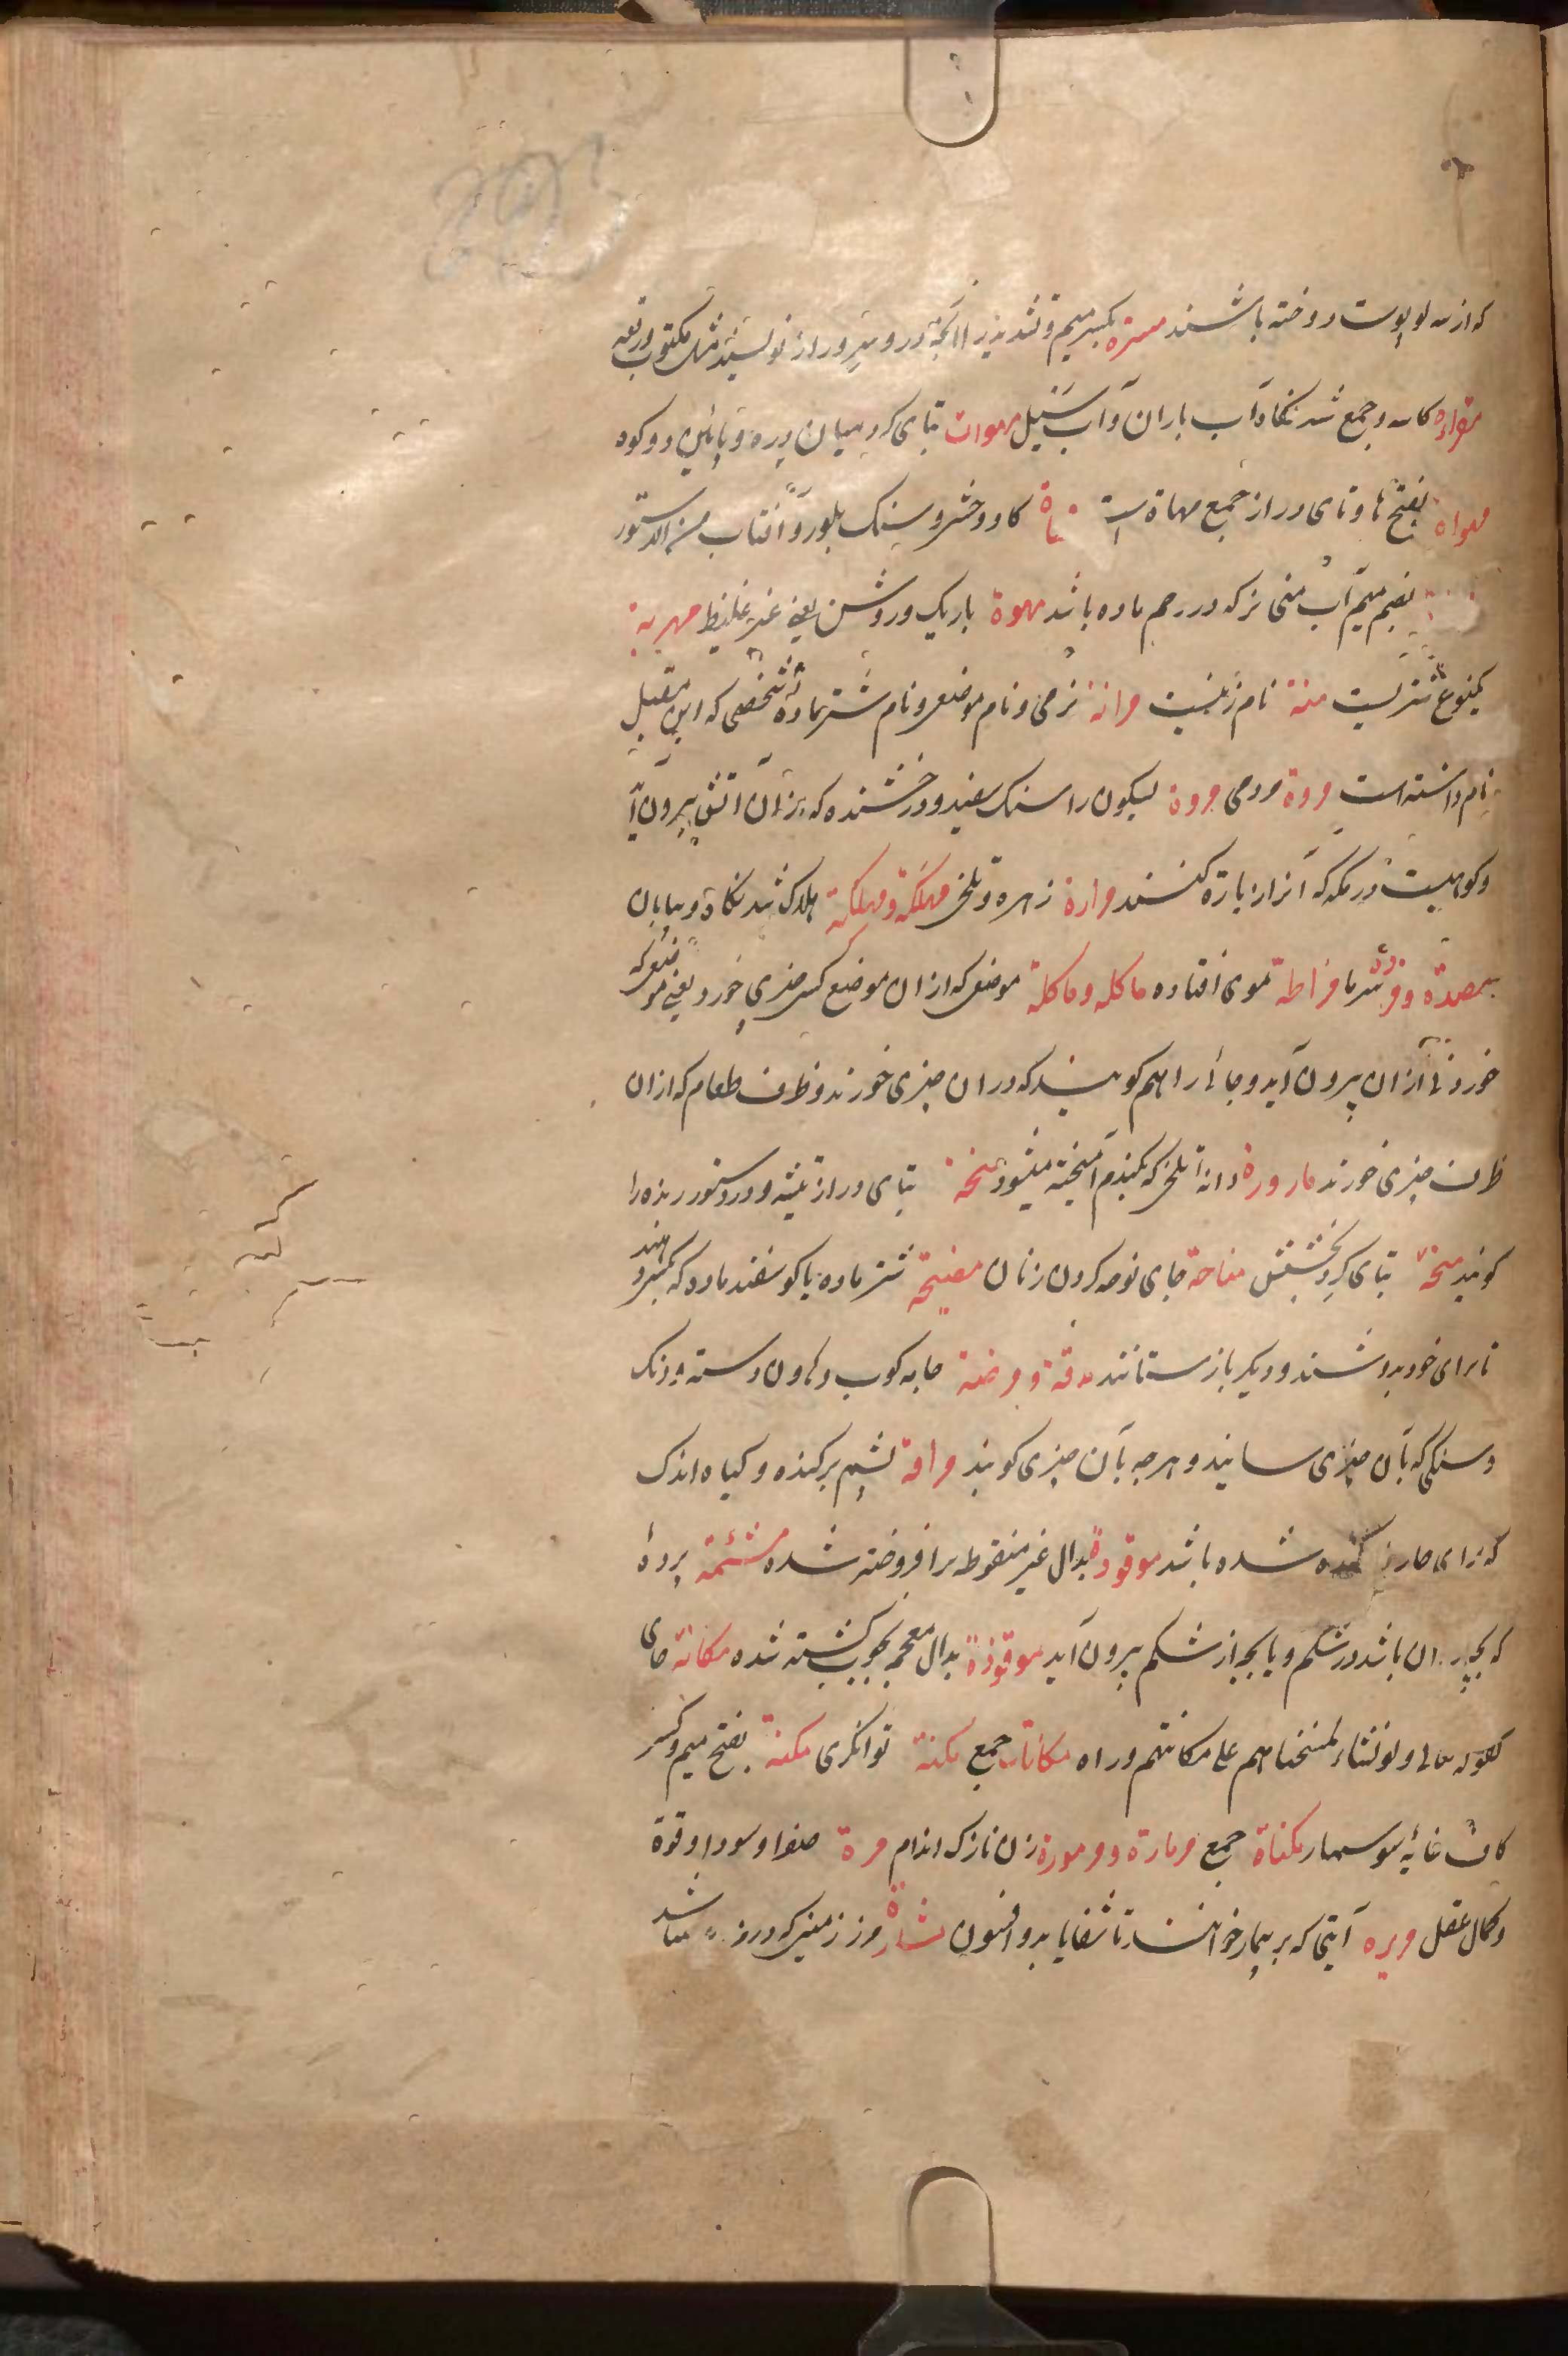 که از سه لو پوست دوخته باشند مسترة بکسر میم و تشدید را آنچه درو سر و راز نویسند مثل مکتوب و رقعه
مقراة کاسه و جمع شدنکاه آب باران و آب سیل مهوات بتای کرد میان دره و پائین دو کوه
مهواه بفتح ها و تای دراز جمع مهاة است کاو وحشی و سنک بلور و آفتاب من الدستور
بضم میم آب منی نر که در رحم ماده باشد مهوة باریک و روشن یعنی غیر غلیظ مهریة
یکنوع شتریست منة نام زنیست مرانة نرمی و نام موضعی و نام شتر مادهٔ شخصی که ابن مقبل
نام داشته است مروة مردمی مروة لیکون را سنک سفید و درخشنده که از آن آتش بیرون آید
و کوهیست در مکه که آنرا زیارة کنند مرارة زهره و تلخی مهلکة و مهلکة هلاک شدنکاه و بیابان
مصدة و شرما مراطة موی افتاده ماکله و ماکلة موضعی که از ان موضع کسی چیزی خورد یعنی موضعی که
خوردنی از ان بیرون آید و جائی را هم کویند که در ان چیزی خورند و ظرف طعام که از ان
ظرف چیزی خورند مارورة دانهٔ تلخی که بکندم آمیخته میشود منحة بتای دراز تیشه و در دستور رنده را
کویند منحة بتای کرد بخشش مناحة جای نوحه کردن زنان منیحة شتر ماده یا کوسفند ماده که بکسی دهند
تا برای خود بدوشند و دیکر باز ستانند مدقة و مرضة جامه کوب و هاون دسته و زنک
و سنکی که بآن چیزی سایند و هرچه بآن چیزی کوبند مراقة پشم برکنده و کیاه اندک
که برای چاروا کنده شده باشد موقودة بدال غیر منقوطه برافروخته شده مشئمة پردهٔ
که بچه در ان باشد در شکم و یا بچه از شکم بیرون آید موقوذة بذال معجمه بچوب کشته شده مکانة جای
کقوله تعالی ولو نشاء لمسخناهم علی مکانتهم و راه مکانات جمع مکنة توانکری مکنة بفتح میم و کسر
کاف خایهٔ سوسمار مکناة جمع مرمارة و مرمورة زن نازک اندام مرة صفرا و سودا و قوة
و کمال عقل مریره آیتی که بر بیمار خوانند تا شفا یابد و افسون مشارة مرز زمینی که درو باشد